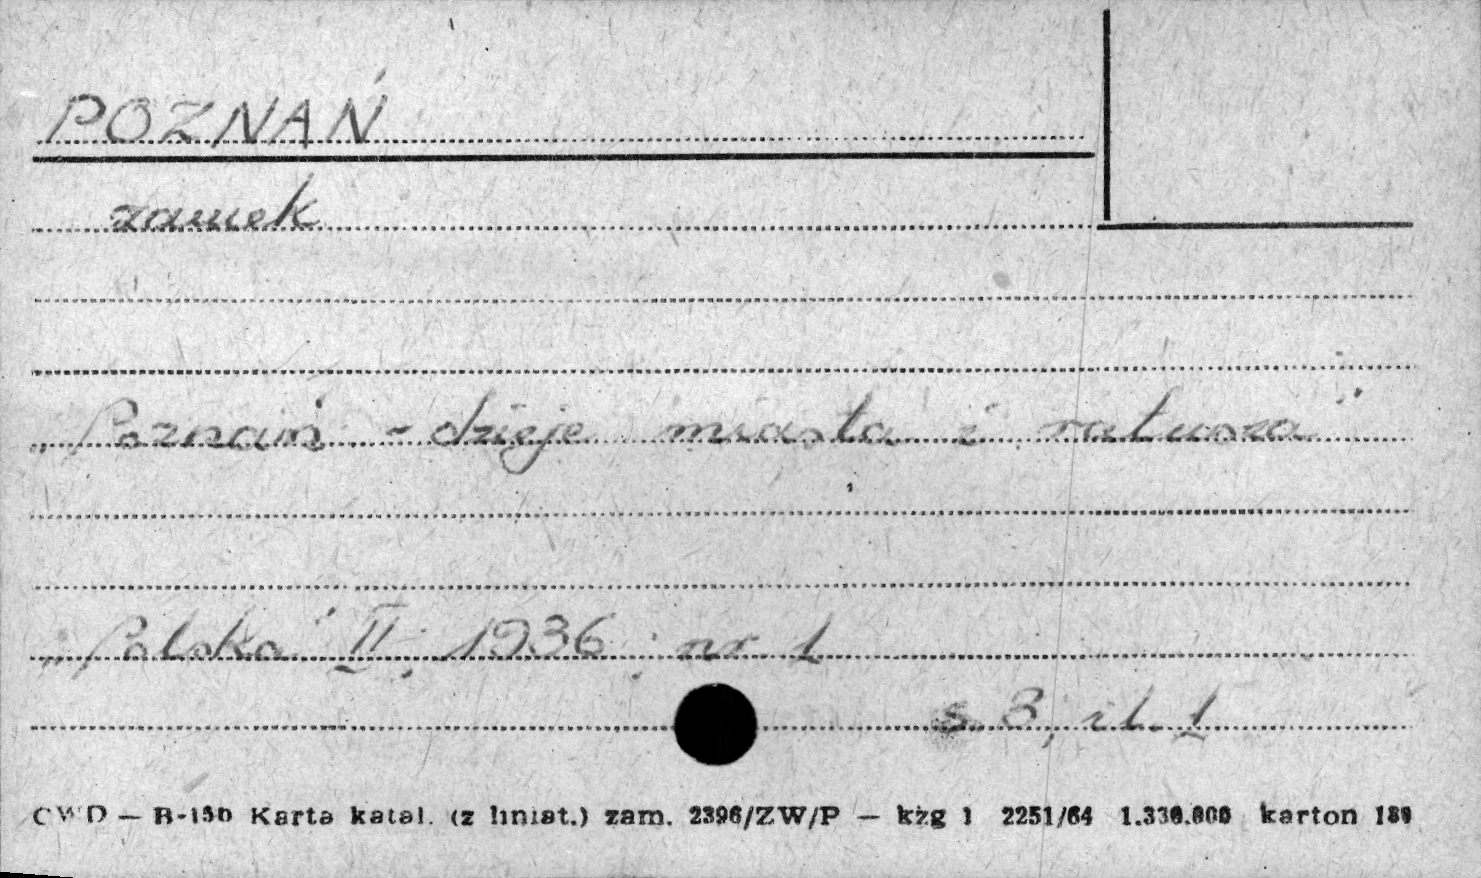 POZNAŃ
zamek
„Poznań - dzieje miasta i ratusza"
„Polska" II, 1936, nr 1
s. 3, il. 1
CWD — B-150 Karta katal. (z liniat.) zam. 2396/ZW/P — kzg 1 2251/64 1.330.000 karton 180